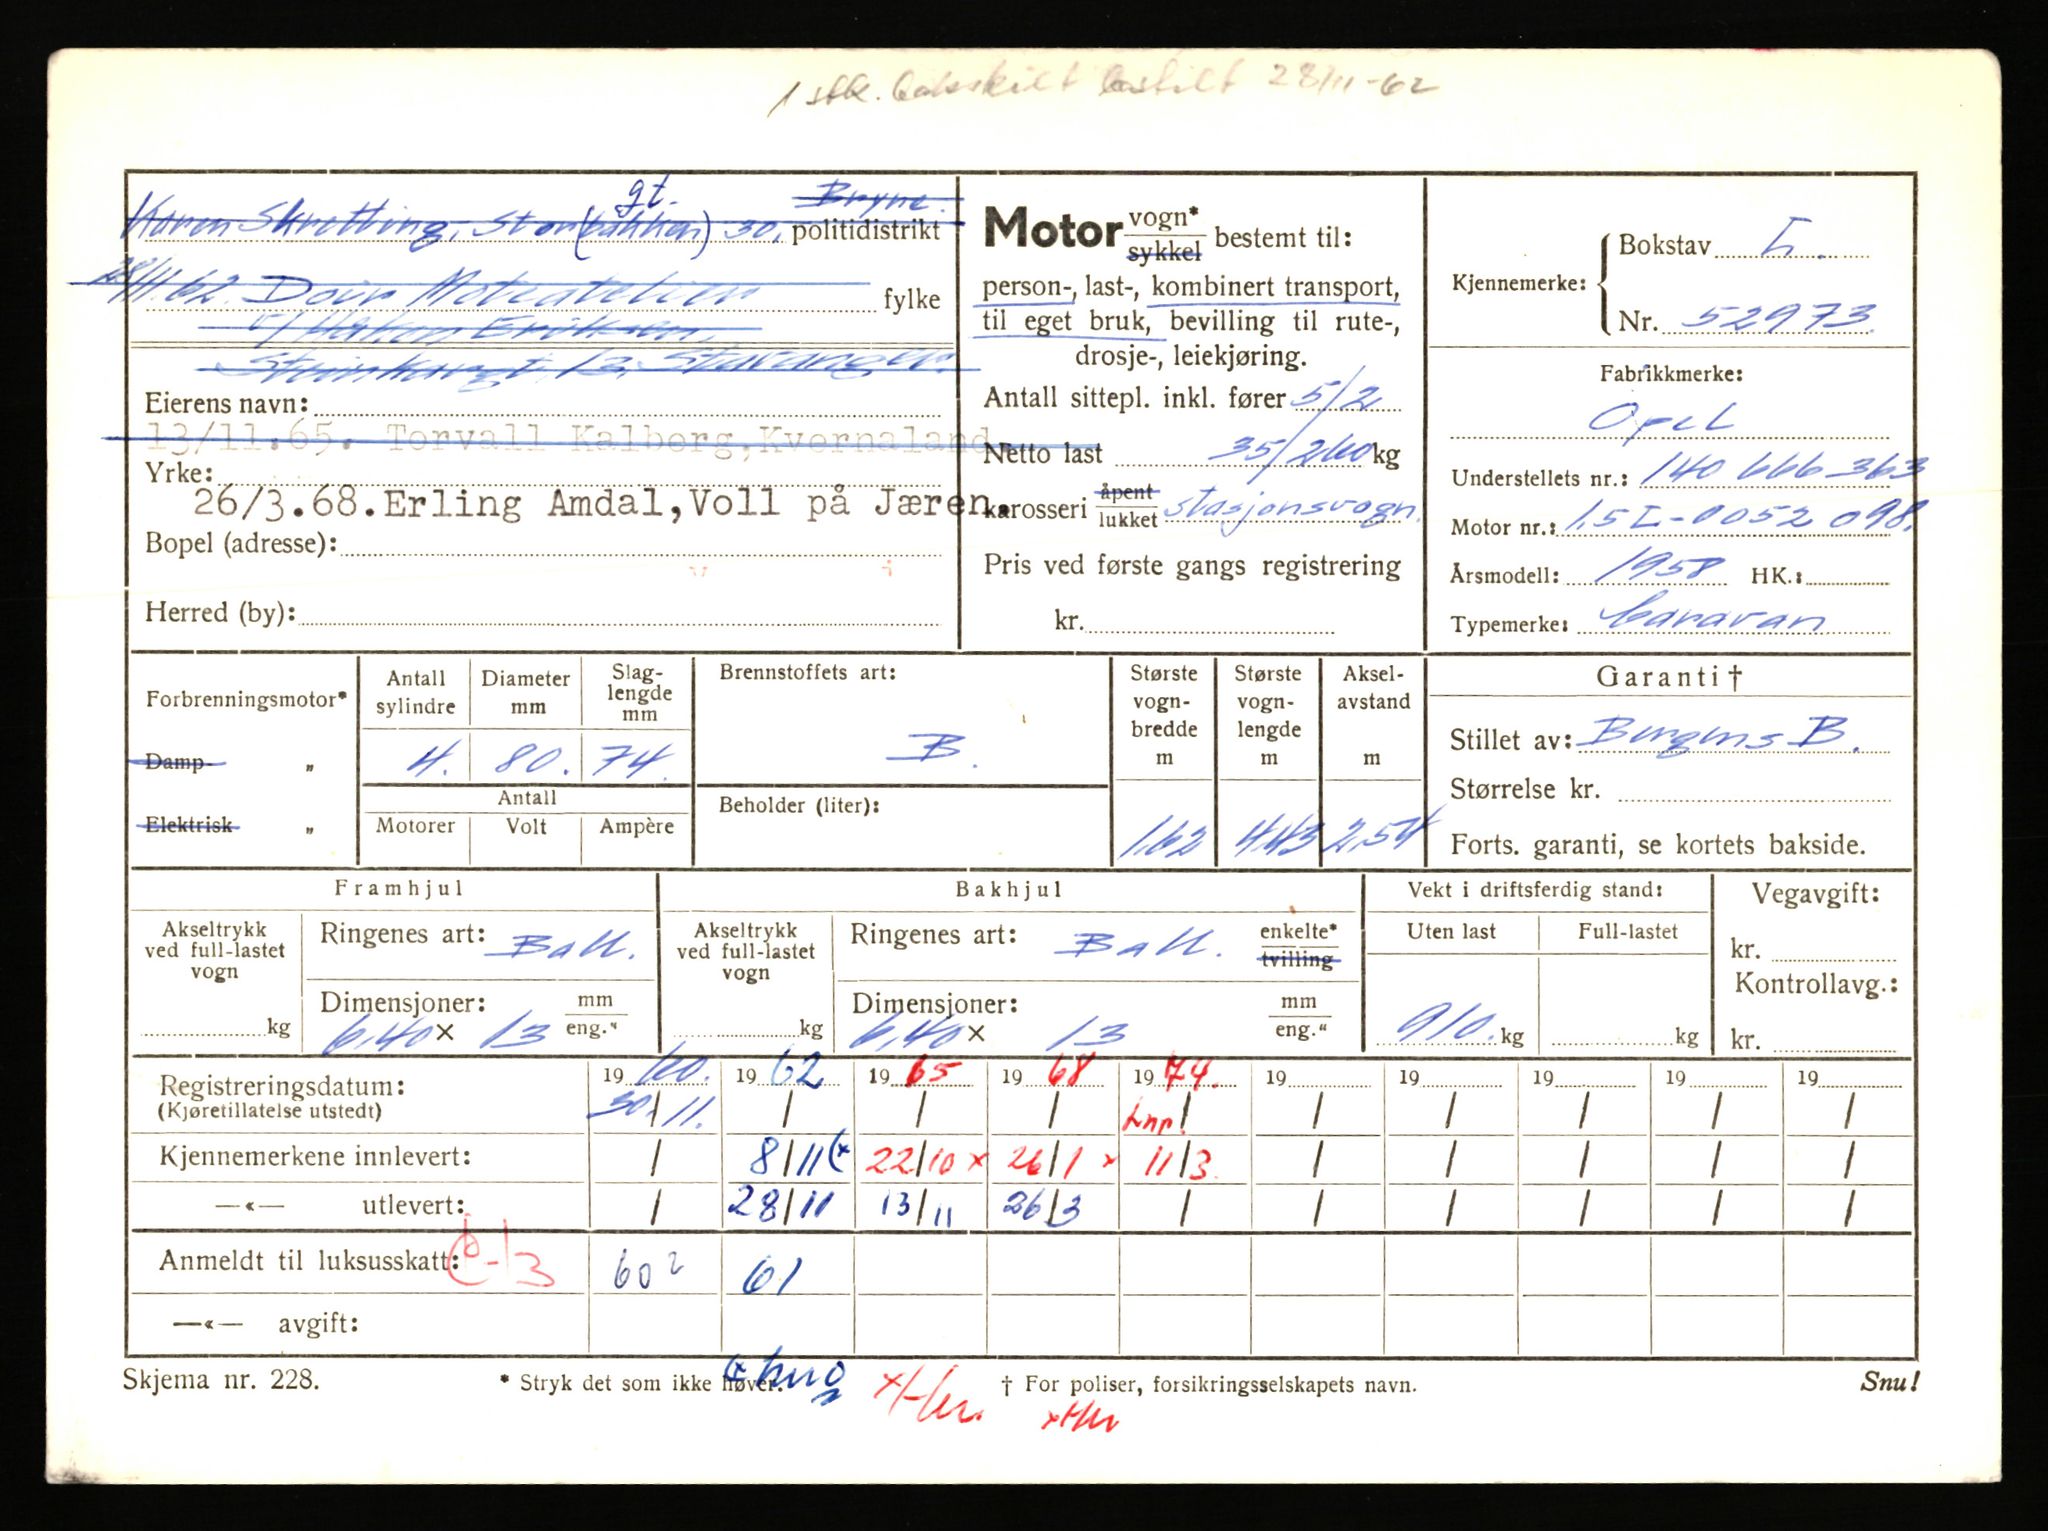 1 stk. bakskilt bestilt 28/11-62
Karen Skretting, Stor(bakken) gt. 30, Bryne.
politidistrikt
28/11.62. Doir Moteatelier
fylke
v/ Håkon Eriksen,
Steinkargt. 12, Stavanger.
Eierens navn:
13/11.65. Torvall Kalberg,Kvernaland
Yrke:
26/3.68.Erling Amdal,Voll på Jæren.
Bopel (adresse):
Herred (by):
Motor vogn* sykkel bestemt til:
person-, last-, kombinert transport,
til eget bruk, bevilling til rute-,
drosje-, leiekjøring.
Antall sittepl. inkl. fører 5/2
Netto last 35/260 kg
karosseri åpent lukket stasjonsvogn.
Pris ved første gangs registrering
kr.
Kjennemerke: Bokstav L.
Nr. 52973.
Fabrikkmerke:
Opel
Understellets nr.: 140 666 363
Motor nr.: 1.5 L-0052 098.
Årsmodell: 1958 HK.:
Typemerke: Caravan
Forbrenningsmotor*
Damp- „
Elektrisk „
Antall sylindre
Diameter mm
Slag-lengde mm
4. 80. 74.
Antall
Motorer Volt Ampère
Brennstoffets art:
B.
Beholder (liter):
Største vogn-bredde m
Største vogn-lengde m
Aksel-avstand m
1.62 4.43 2.54
Garanti †
Stillet av: Bergens B.
Størrelse kr.
Forts. garanti, se kortets bakside.
Framhjul
Akseltrykk ved full-lastet vogn
kg
Ringenes art: Ball.
Dimensjoner: mm eng."
6.40 × 13
Bakhjul
Akseltrykk ved full-lastet vogn
kg
Ringenes art: Ball. enkelte* tvilling
Dimensjoner: mm eng."
6.40 × 13
Vekt i driftsferdig stand:
Uten last Full-lastet
910. kg kg
Vegavgift:
kr.
Kontrollavg.:
kr.
Registreringsdatum: 19 60. 19 62 19 65 19 68 19 74. 19 19 19 19 19
(Kjøretillatelse utstedt) 30/11. / / / Lnr. / / / / / /
Kjennemerkene innlevert: / 8/11 (* 22/10 x 26/1 x 11/3 / / / / /
—«— utlevert: / 28/11 13/11 26/3 / / / / / /
Anmeldt til luksusskatt: 60 2 61
—«— avgift:
Skjema nr. 228.
* Stryk det som ikke høver.
† For poliser, forsikringsselskapets navn.
Snu!